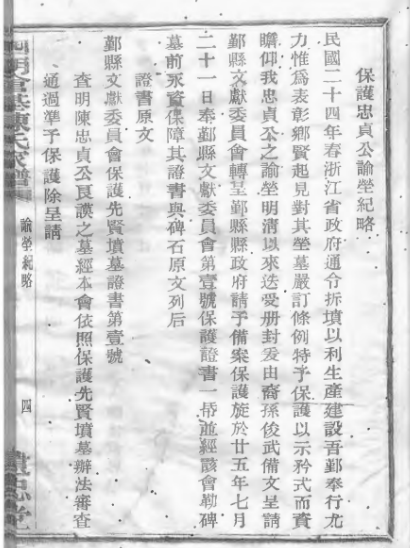 保護忠貞公諭塋紀略
民國二十四年春浙江省政府通令拆墳以利生產建設吾鄞奉行尤
力惟爲表彰鄉賢起見對其塋墓嚴訂條例特予保護以示矜式而資
瞻仰我忠貞公之諭塋明淸以來迭受册封爰由裔孫俊武備文呈請
鄞縣文獻委員會轉呈鄞縣縣政府請予備案保護旋於廿五年七月
二十一日奉鄞縣文獻委員會第壹號保護證書一帋並經該會勒碑
墓前永資保障其證書與碑石原文列后
證書原文
鄞縣文獻委員會保護先賢墳墓證書第壹號
查明陳忠貞公良謨之墓經本會依照保護先賢墳墓辦法審查
通過準予保護除呈請
諭塋紀略
四